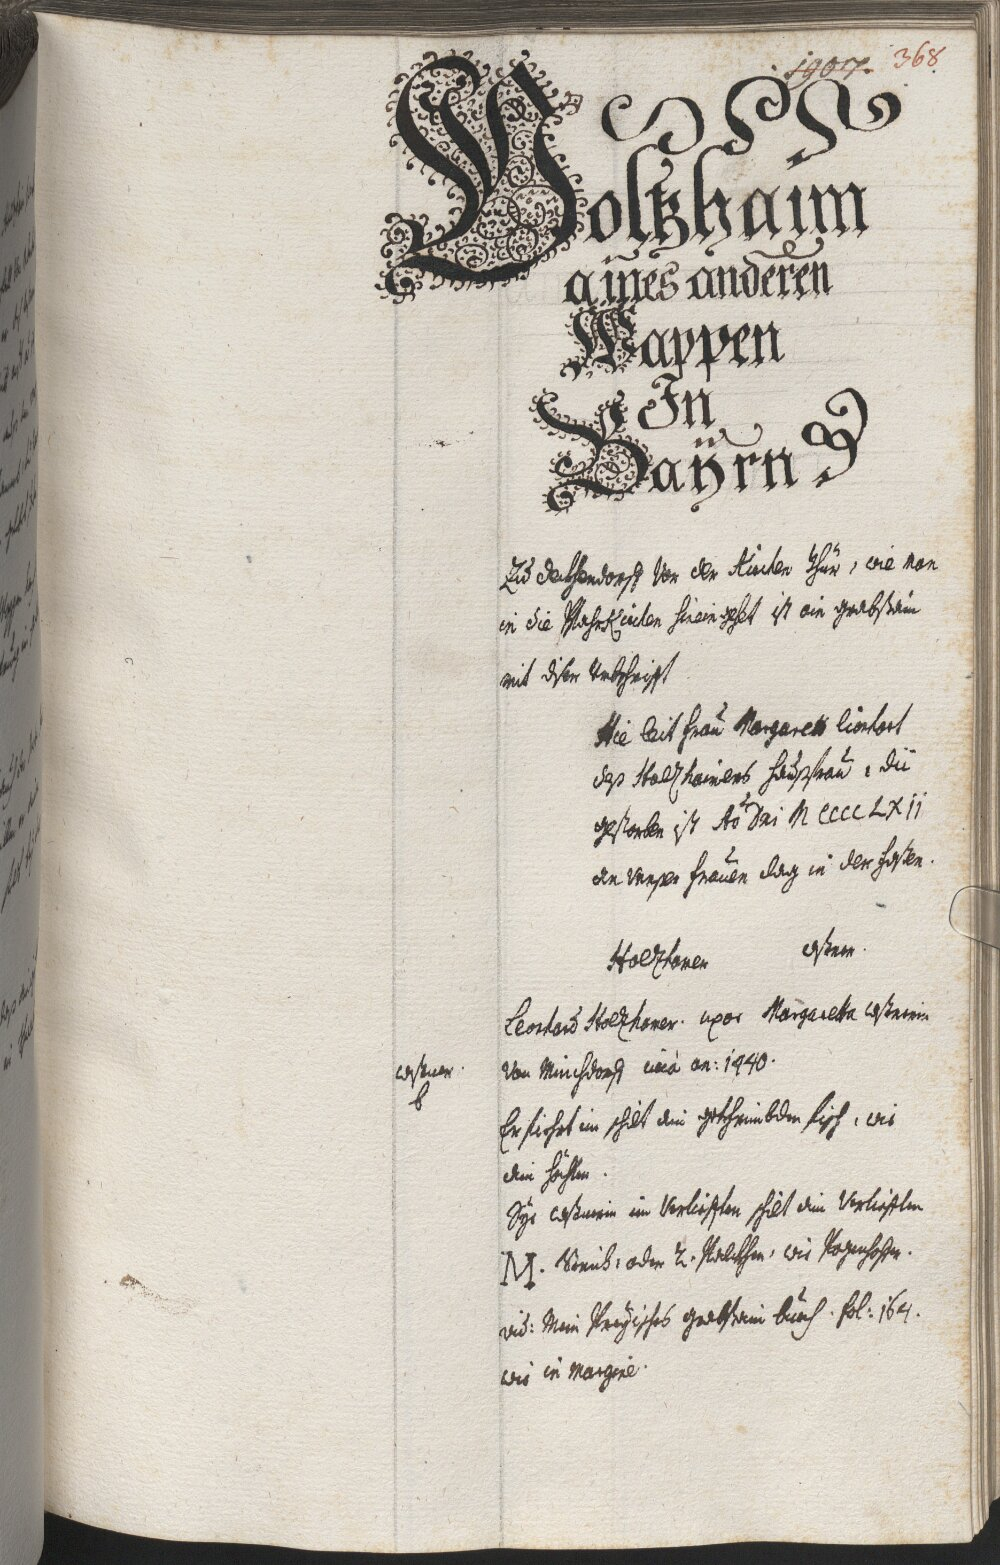 1907. 368
Holtzhaim
aines anderen
Wappen
In
Baÿrn
Zu deckhendorff Vor der Kirchen thür, wie man
in die Pfahrkirchen hinein gehet ist ein grabstain
mit diser Vmbschrifft
Hie leit frau Margareth lienhart
des Holtzhaimers hausfrau, dii
gestorben ist Aõ Dni M CCCC LXII
an Vnser frauen dag in der fasten.
Holtzhamer
Leonhard Holtzhamer. uxor Margaretta
Von Minchdorff circa an: 1440.
Er fiehrt im schilt ain gekhrimbden fisch, wie
ain
im Vertieften schilt ain Vertieften
M. oder 2. wie
vid: Mein Preÿisches grabstain buech. fol: 164.
wie in margine.